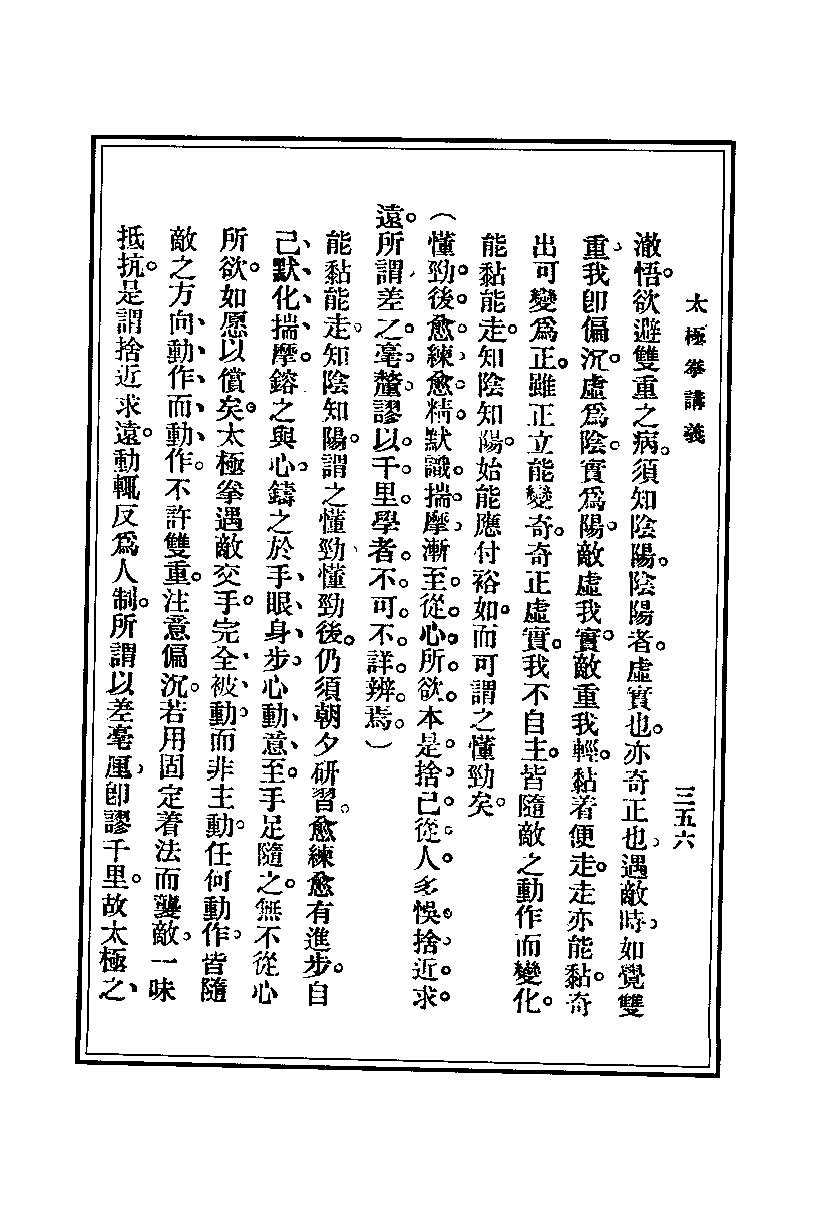 太極拳講義　三五六
澈悟。欲避雙重之病。須知陰陽。陰陽者。虛實也。亦奇正也。遇敵時。如覺雙
重。我卽偏沉。虛爲陰。實爲陽。敵虛我實。敵重我輕。黏着便走。走亦能黏。奇
出可變爲正。雖正立能變奇。奇正虛實。我不自主。皆隨敵之動作而變化。
能黏能走。知陰知陽。始能應付裕如。而可謂之懂勁矣。
（懂勁後。愈練愈精。默識揣摩。漸至從心所欲。本是捨己從人。多悞捨近求
遠。所謂差之毫釐。謬以千里。學者不可不詳辨焉。）
能黏能走。知陰知陽。謂之懂勁、懂勁後。仍須朝夕研習。愈練愈有進步。自
己、默化、揣摩。鎔之與心。鑄之於手、眼、身、步。心動、意至。手足隨之。無不從心
所欲。如愿以償矣。太極拳遇敵交手。完全被動。而非主動。任何動作。皆隨
敵之方向、動作、而動作。不許雙重。注意偏沉。若用固定着法而襲敵。一味
抵抗。是謂捨近求遠。動輒反爲人制。所謂以差毫厘。卽謬千里。故太極之、